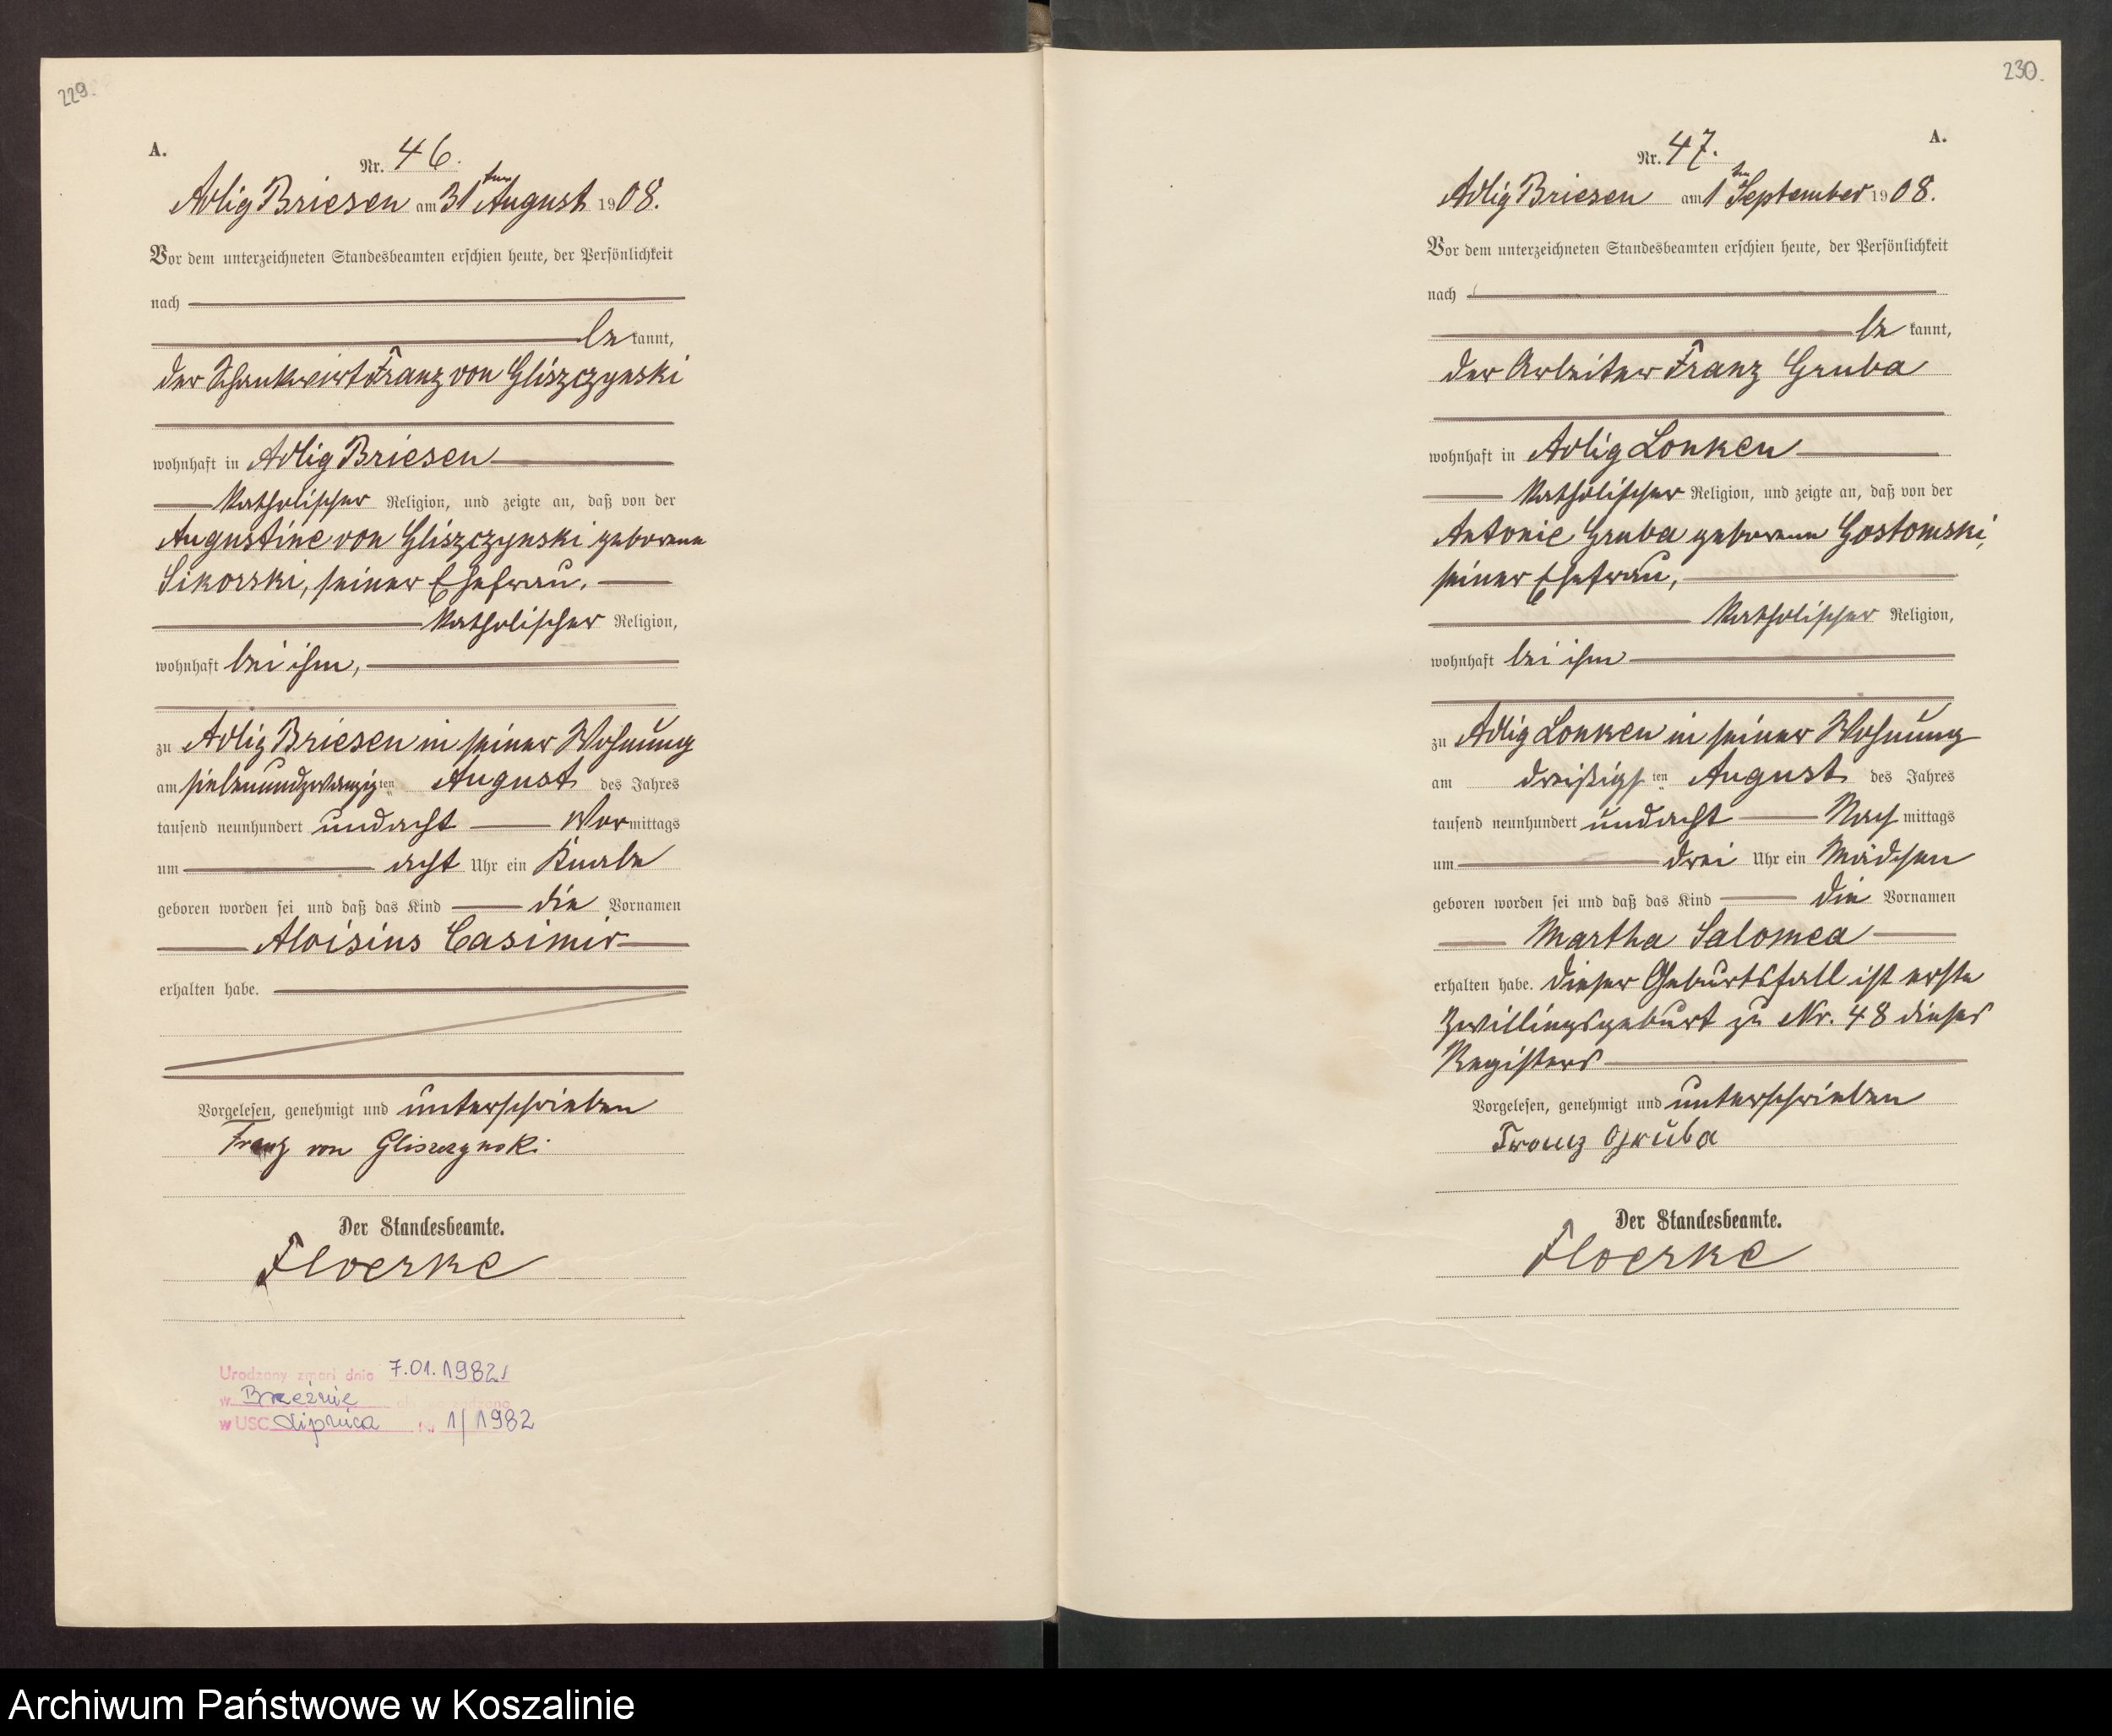 229.
A.
Nr. 46.
Adlig Briesen am 31ten August 1908.
Vor dem unterzeichneten Standesbeamten erschien heute, der Persönlichkeit
nach
be kannt,
der Schankwirt Franz von Gliszczynski
wohnhaft in Adlig Briesen
katholischer Religion, und zeigte an, daß von der
Augustine von Gliszczynski geborene
Sikorski, seiner Ehefrau,
katholischer Religion,
wohnhaft bei ihm,
zu Adlig Briesen in seiner Wohnung
am siebenundzwanzigten August des Jahres
tausend neunhundert undacht Vormittags
um acht Uhr ein Knabe
geboren worden sei und daß das Kind die Vornamen
Aloisius Casimir
erhalten habe.
Vorgelesen, genehmigt und unterschrieben
Franz von Gliszczynski
Der Standesbeamte.
Floerke
Urodzony zmarł dnia 7.01.1982r
w Brzeźnie
w USC Lipnica Nr 1/1982
230.
A.
Nr. 47.
Adlig Briesen am 1ten September 1908.
Vor dem unterzeichneten Standesbeamten erschien heute, der Persönlichkeit
nach
be kannt,
der Arbeiter Franz Gruba
wohnhaft in Adlig Lonken
katholischer Religion, und zeigte an, daß von der
Antonie Gruba geborene Gostomski,
seiner Ehefrau,
katholischer Religion,
wohnhaft bei ihm
zu Adlig Lonken in seiner Wohnung
am dreißigsten August des Jahres
tausend neunhundert undacht Nachmittags
um drei Uhr ein Mädchen
geboren worden sei und daß das Kind die Vornamen
Martha Salomea
erhalten habe. Dieser Geburtsfall ist erste
Zwillingsgeburt zu Nr. 48 dieses
Registers
Vorgelesen, genehmigt und unterschrieben
Franz Gruba
Der Standesbeamte.
Floerke
Archiwum Państwowe w Koszalinie